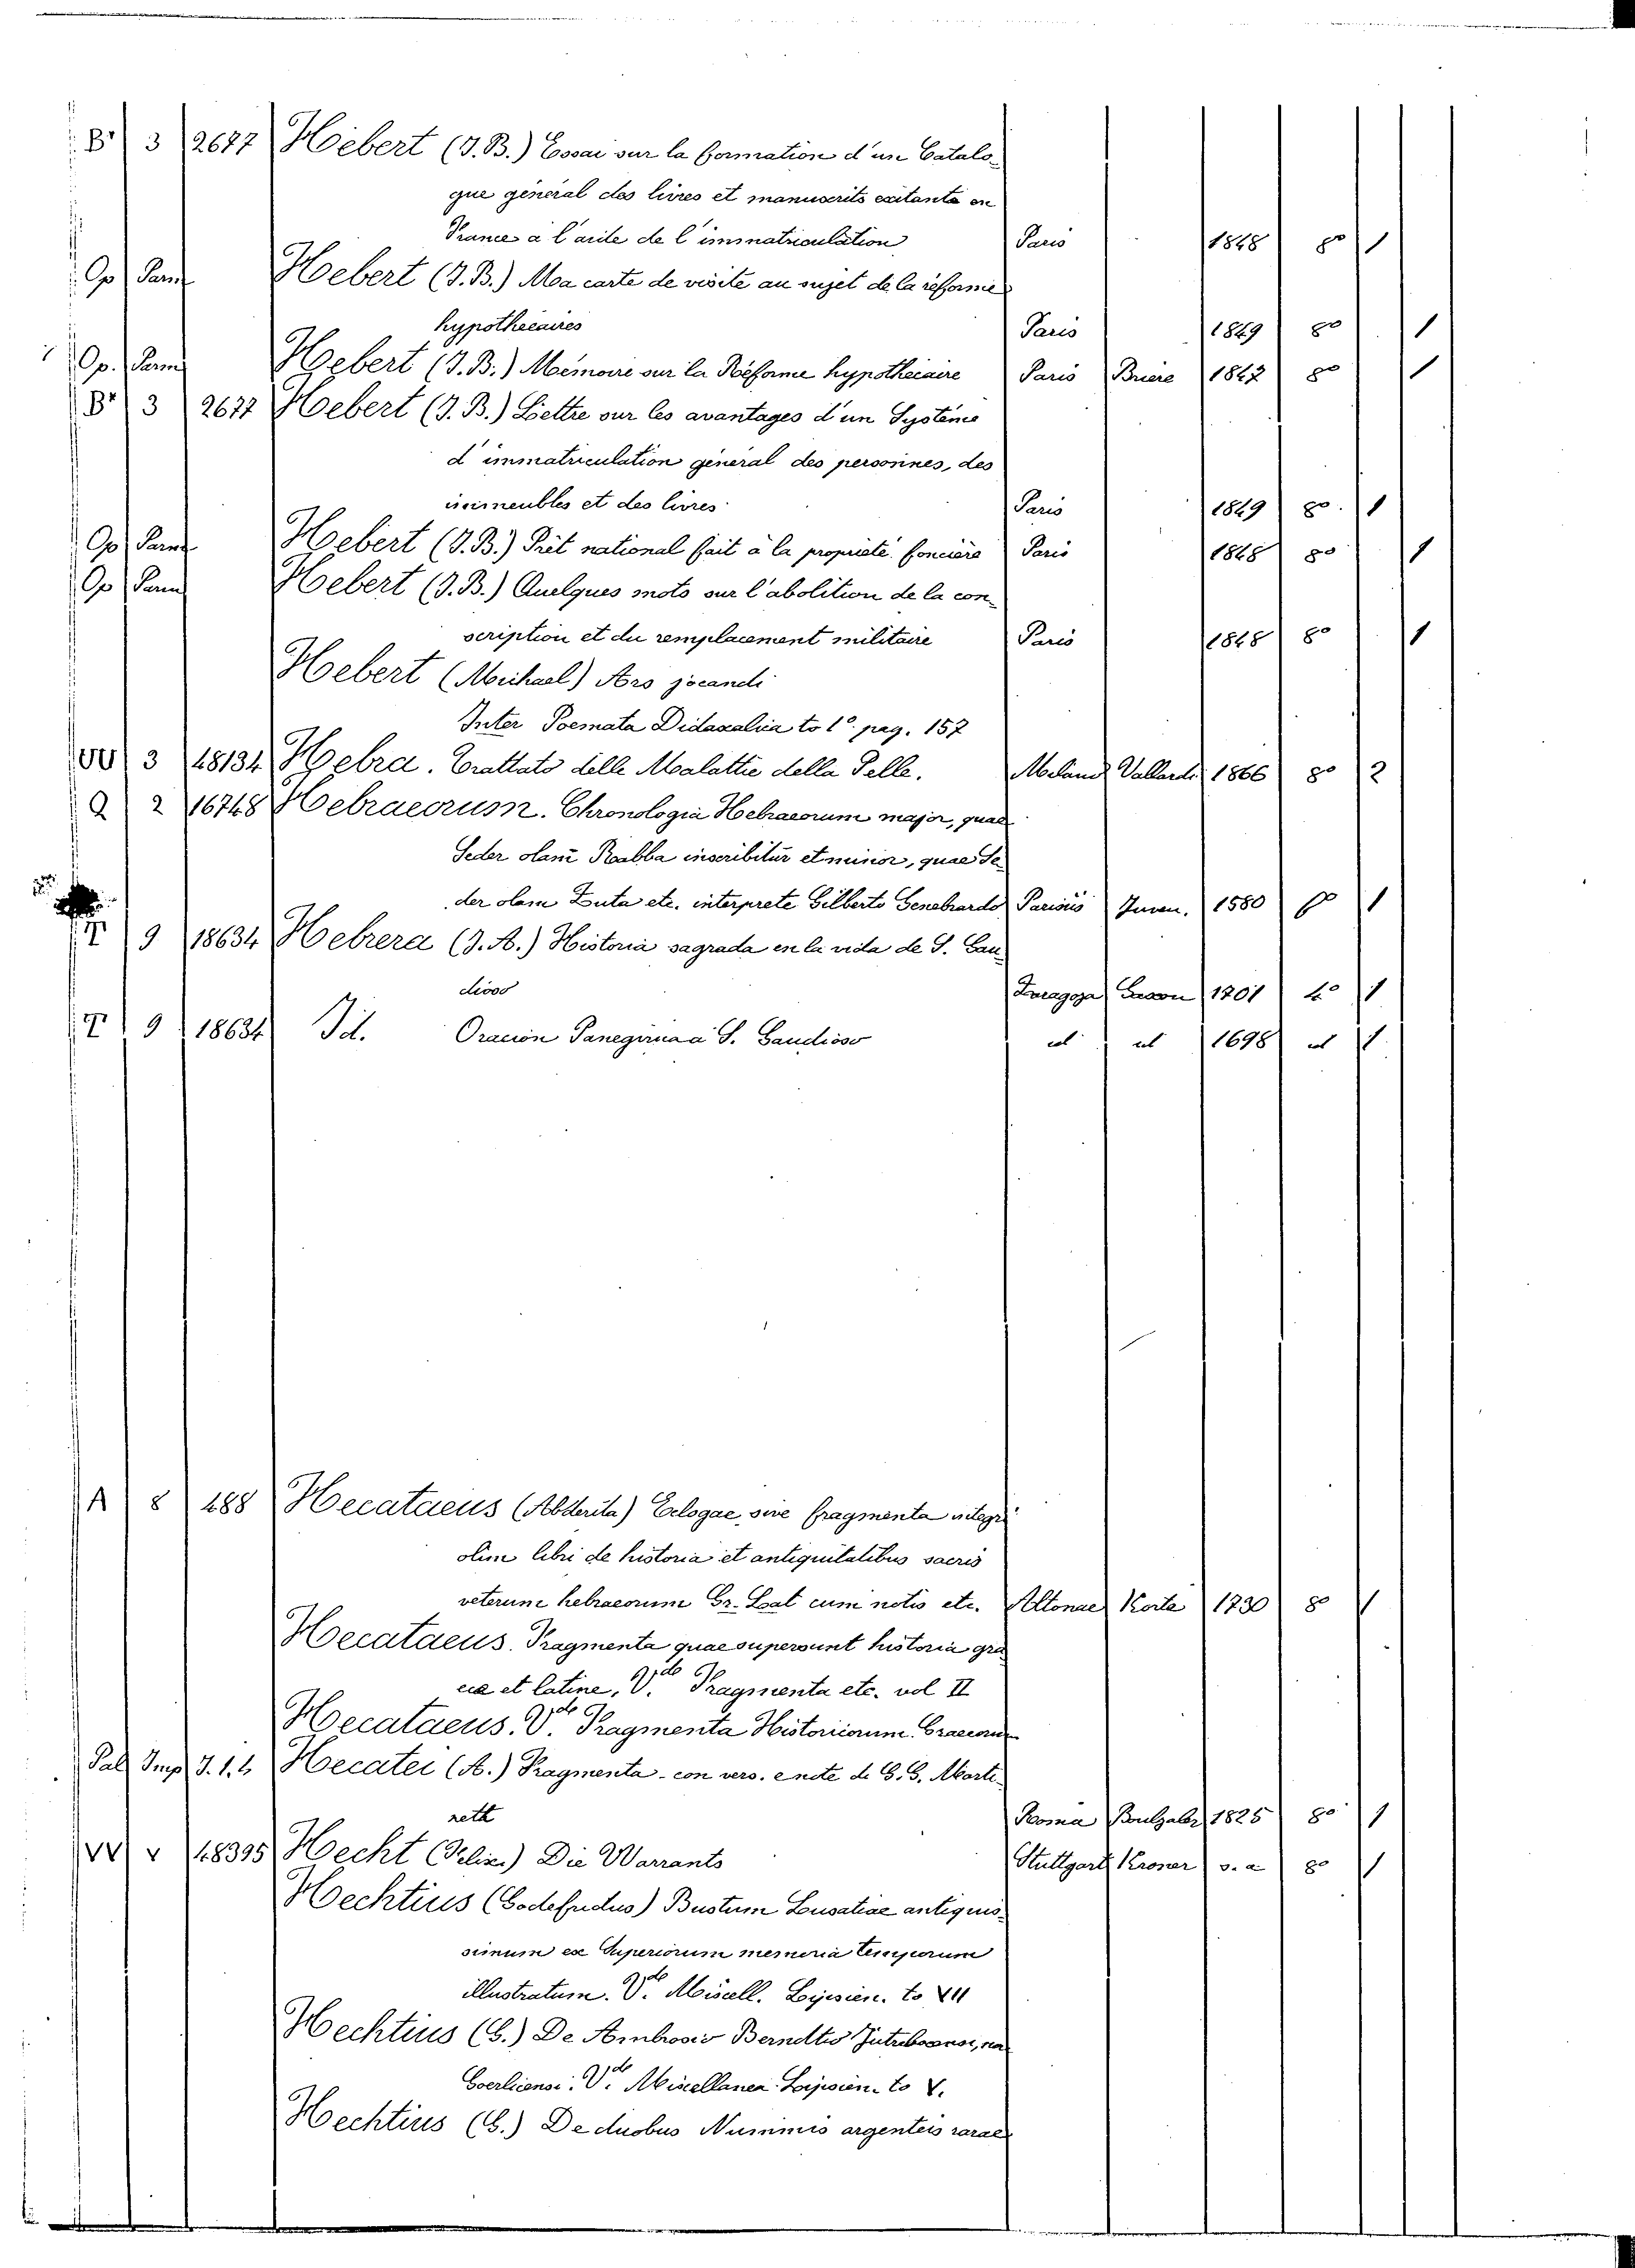 B. 3 2677 Hebert (J. B.) Essai sur la formation d'un Catalo-
gue général des livres et manuscrits exitants en
France a l'arile de l'immatriculation Paris 1848 8° 1
Op. Parm Hebert (J. B.) Ma carte de visite au sujet de la réforme
hypothecaires Paris 1849 8° 1
Op. Parm Hebert (J. B.) Mémoire sur la Réforme hypothécaire Paris Bruere 1847 8° 1
B. 3 2677 Hebert (J. B.) Lettre sur les avantages d'un Système
d'immatriculation général des personnes, des
immeubles et des livres Paris 1849 8° 1
Op. Parm Hebert (J. B.) Prêt national fait à la propriété foncière Paris 1848 8° 1
Op. Parm Hebert (J. B.) Quelques mots sur l'abolition de la con-
scription et du remplacement militaire Paris 1848 8° 1
Hebert (Michael) Ars jocandi
Inter Poemata Didascalica to 1° pag. 157
3 18134 Hebra. Trattato delle Malattie della Pelle. Milano Vallardi 1866 8° 2
Q 2 16748 Hebraeorum. Chronologia Hebraeorum major, quae
Seder olam Rabba inscribitur et minor, quae Se-
der olam Zuta etc. interprete Gilberto Genebrardo Parisiis Juven. 1580 1
T 9 18634 Hebrera (J. A.) Historia sagrada en la vida de S. Gau-
dioso Zaragoza 1701 4° 1
T 9 18634 Id. Oracion Panegirica a S. Gaudioso id id 1698 id 1
A 8 488 Hecataeus (Abderita) Eclogae, sive fragmenta integri
olim libri de historia et antiquitatibus sacris
veterum hebraeorum Gr. Lat cum notis etc. Altonae Korte 1730 8° 1
Hecataeus. Fragmenta quae supersunt historia gra-
cia et latine, V.de Fragmenta etc. vol II
Hecataeus. V.de Fragmenta Historicorum Graecorum
Pal Imp J. 1. 4 Hecatei (A.) Fragmenta - con vers. e note di G. G. Marti-
nett Roma Boulzaler 1825 8° 1
VV v 18395 Hecht (Felix) Die Warrants Stuttgart Kroner s. a 8° 1
Hechtius (Godefridus) Bustum Lusatiae antiquis-
simum ex Superiorum memoria temporum
illustratum. V.de Miscell. Lipsien. to VII
Hechtius (G.) De Ambrosio Berndtio Jutrebocensi,
Goerlicensi. V.de Miscellanea Lipsien. to V.
Hechtius (G.) De duobus Nummis argenteis rarae